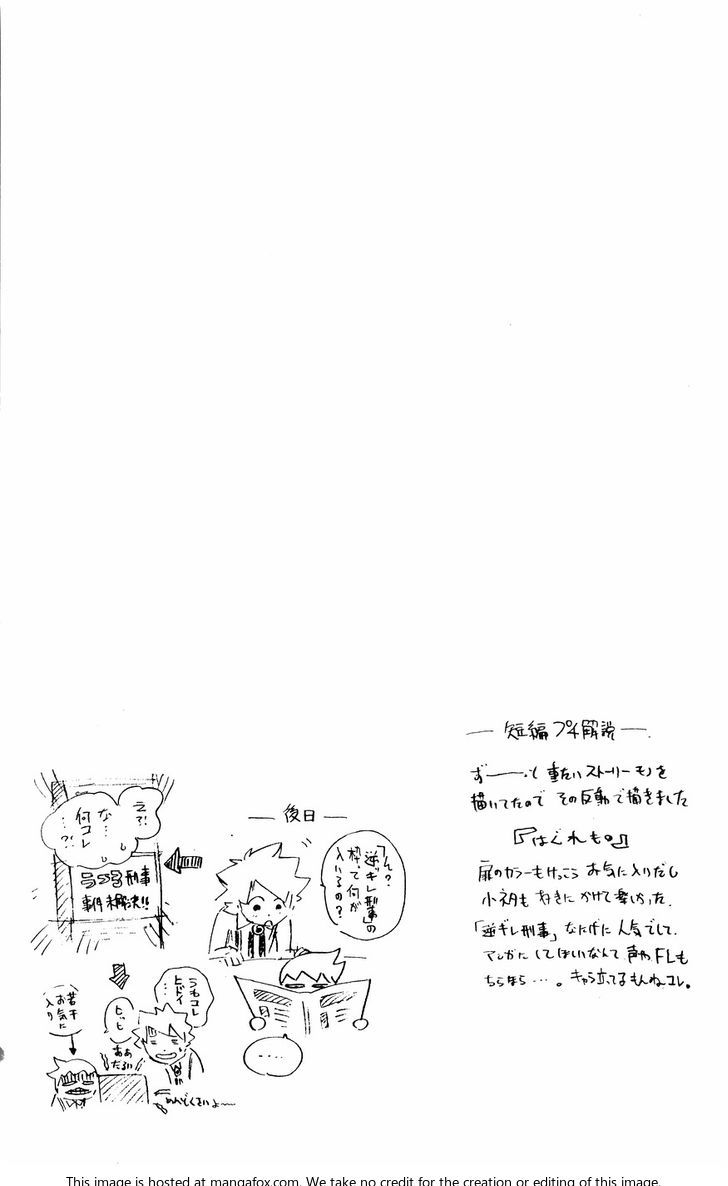 — 短編プチ解説 —
ず——っと重たいストーリーモノを
描いてたので その反動で描きました
『はぐれもの』
扉のカラーもけっこうお気に入りだし
小ネタも好きにかけて楽しかった。
「逆ギレ刑事」なにげに人気でして
マンガにしてほしいなんて声やFLも
ちらほら…。キャラ立ってるもんねコレ。
— 後日 —
「逆ギレ刑事」の
枠って何が
入いるの?
……
え?!
な…
何コレ
…?!
刑事
事件未解決!!
うわコレ
ヒドイ
…
ああ
だるい
若干
お気に
入り
めんどくさいよ〜
This image is hosted at mangafox.com. We take no credit for the creation or editing of this image.